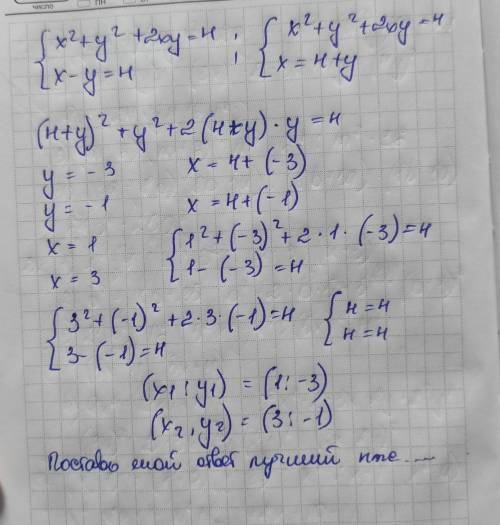 число
ПН
x²+y²+2xy=4 ; x²+y²+2xy=4
x-y=4 x=4+y
(4+y)²+y²+2(4+y)·y=4
y=-3 x=4+(-3)
y=-1 x=4+(-1)
x=1 1²+(-3)²+2·1·(-3)=4
x=3 1-(-3)=4
3²+(-1)²+2·3·(-1)=4 4=4
3-(-1)=4 4=4
(x₁;y₁)=(1;-3)
(x₂,y₂)=(3;-1)
Поставь мой ответ лучший пже....